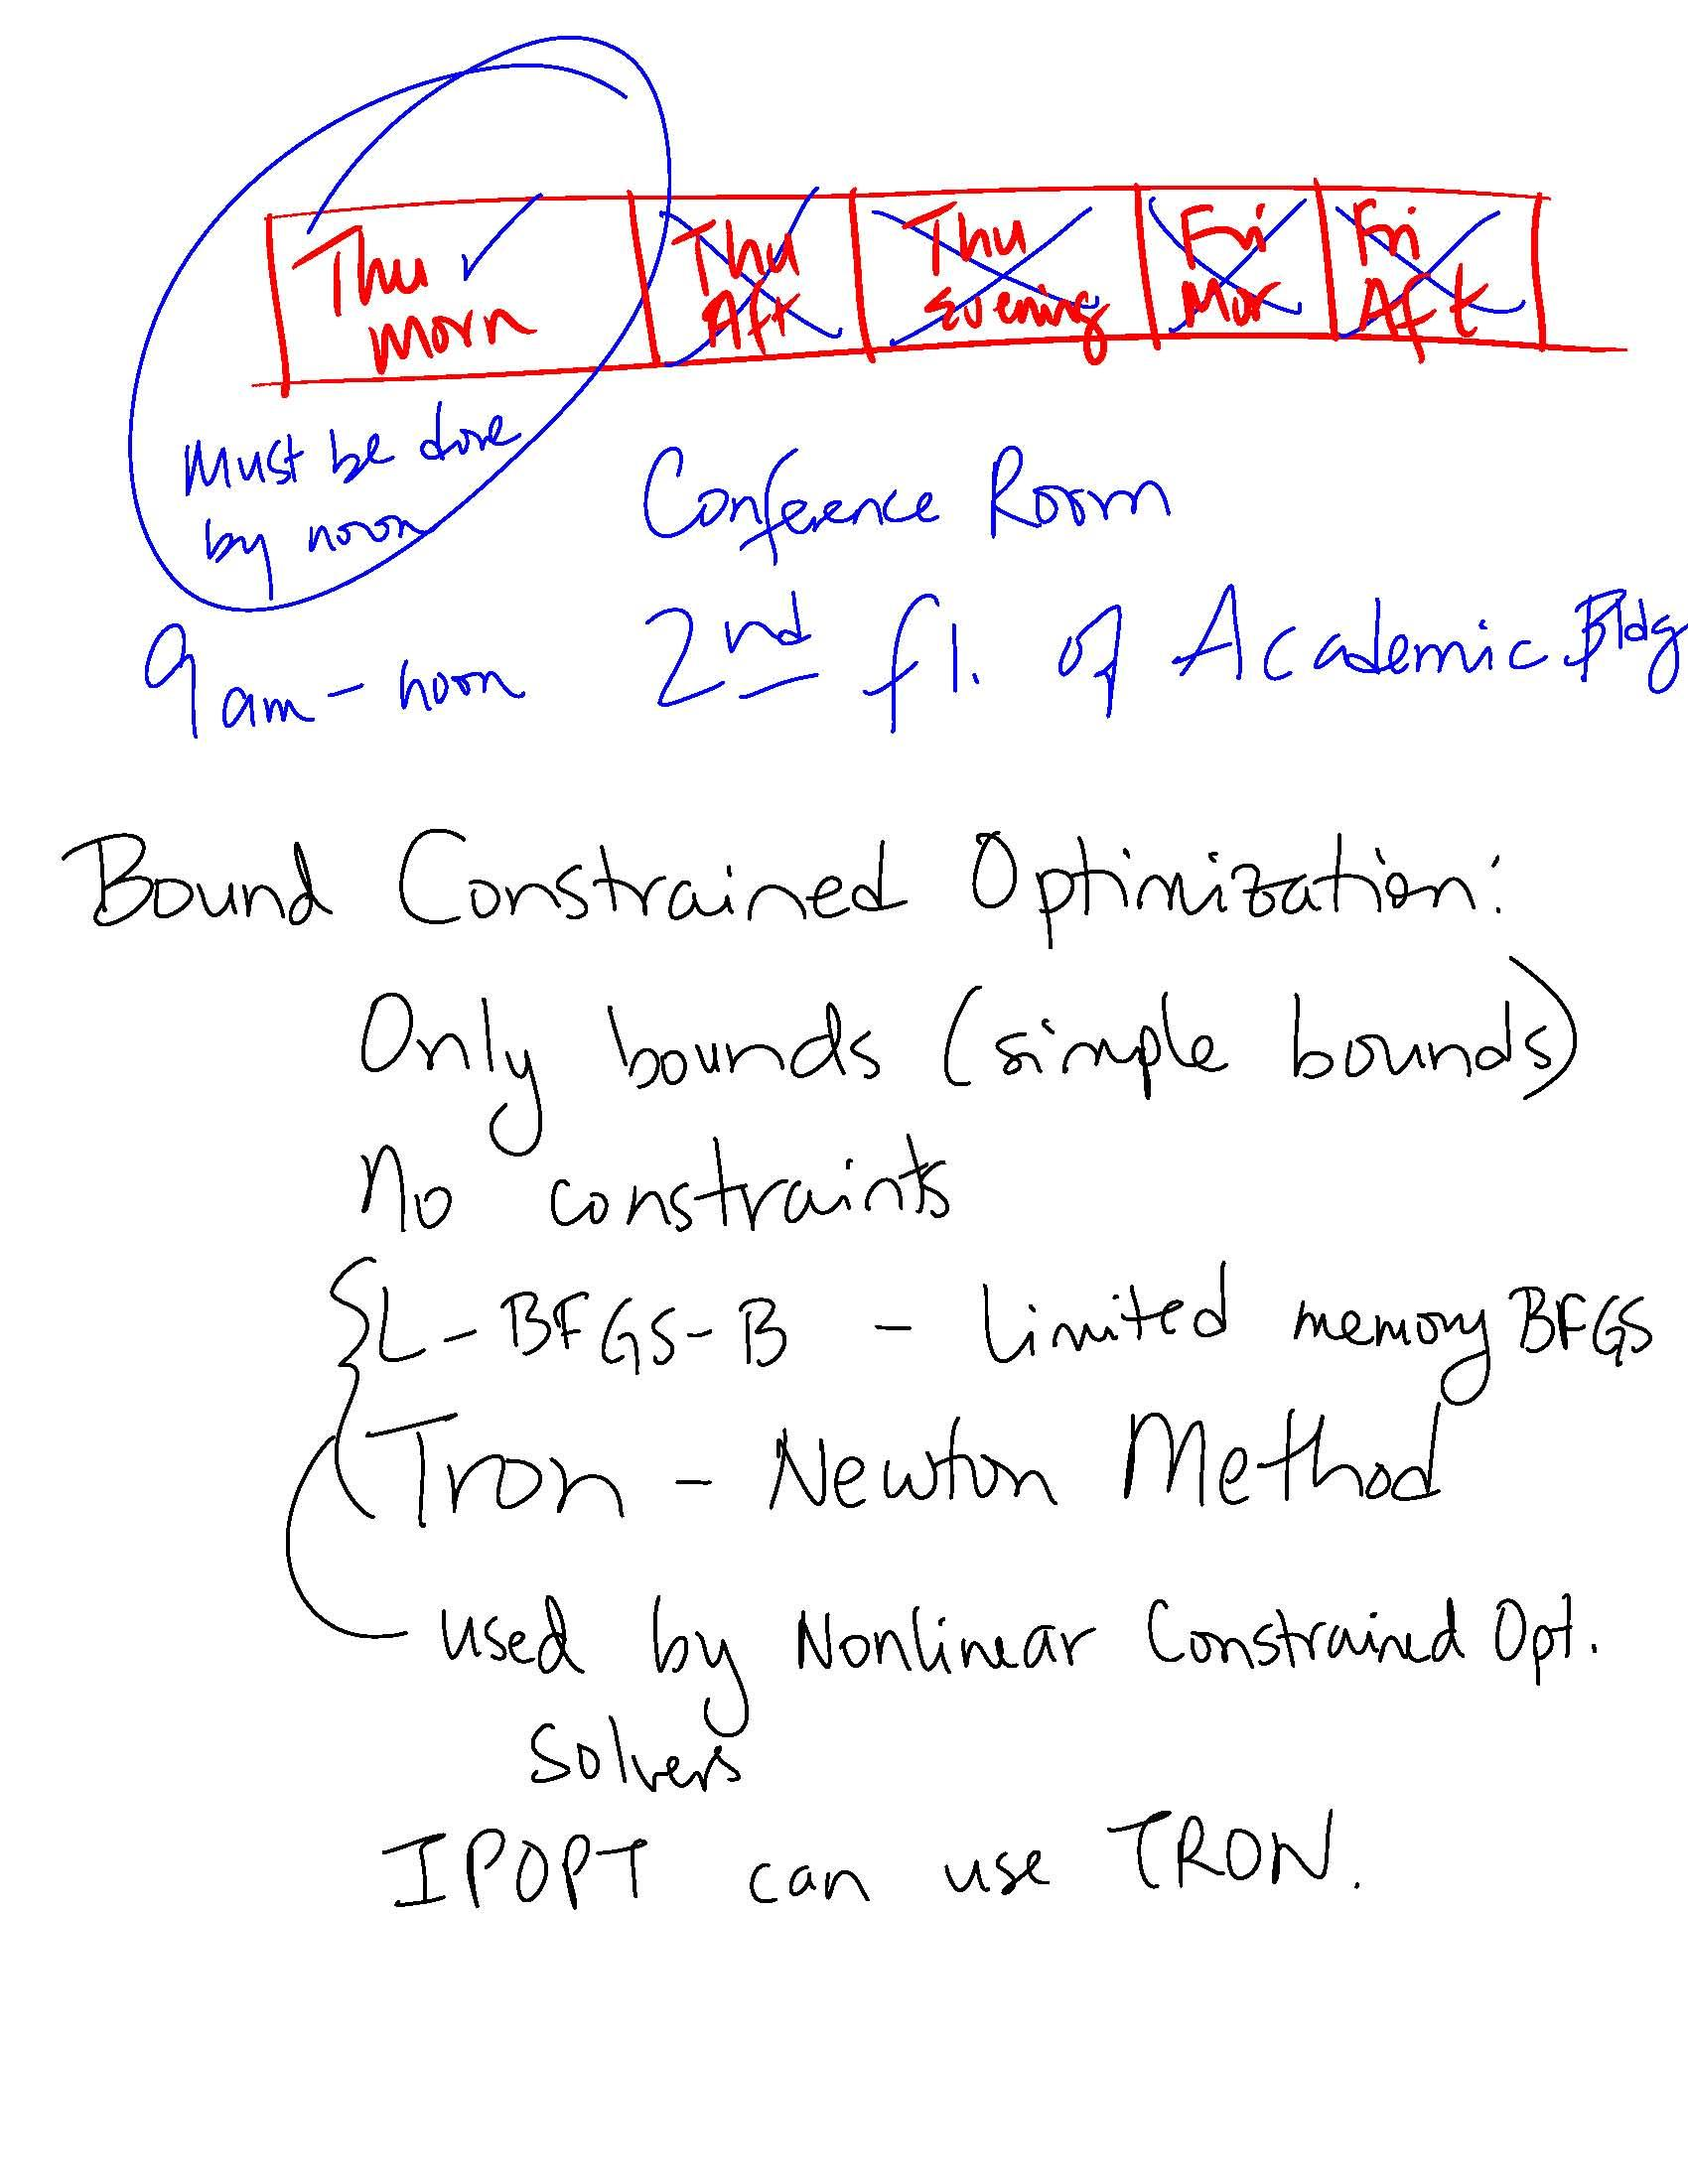 Thu morn ✓ Thu Aft Thu Evening Fri Mor Fri Aft
Must be done
by noon
Conference Room
9am - noon 2nd fl. of Academic Bldg
Bound Constrained Optimization:
Only bounds (simple bounds)
No constraints
L-BFGS-B - Limited memory BFGS
Tron - Newton Method
used by Nonlinear Constrained Opt.
Solvers
IPOPT can use TRON.